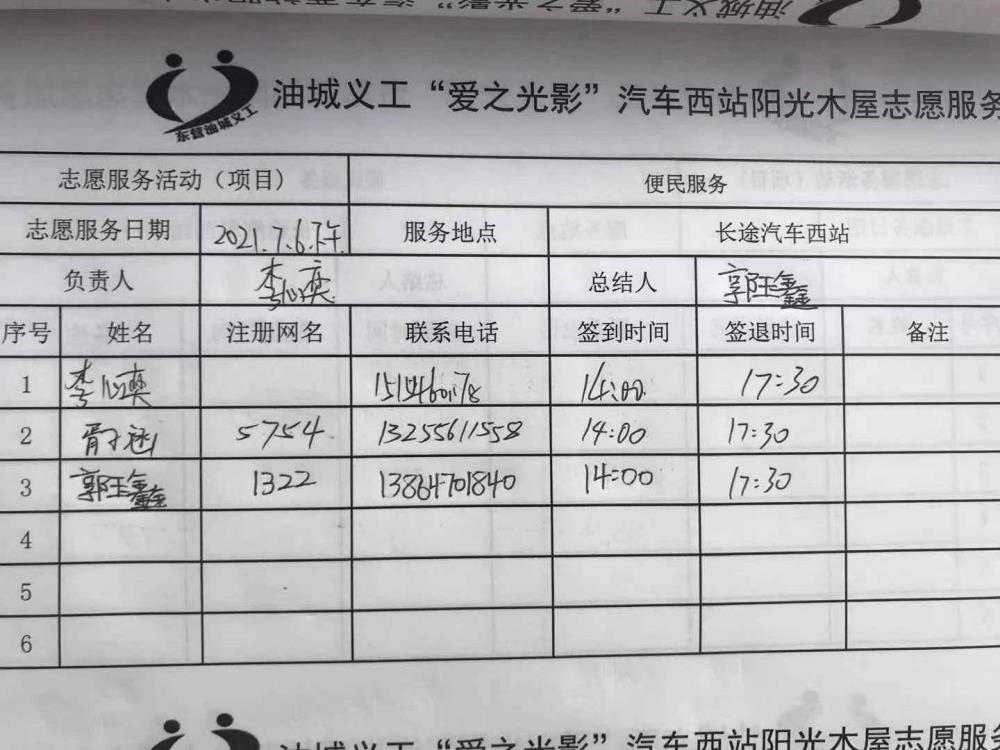 油城义工“爱之光影”汽车西站阳光木屋志愿服务
东营油城义工
志愿服务活动（项目） 便民服务
志愿服务日期 2021.7.6.下午 服务地点 长途汽车西站
负责人 李心奕 总结人 郭玉鑫
序号 姓名 注册网名 联系电话 签到时间 签退时间 备注
1 李心奕 14:00 17:30
2 5754 13255611558 14:00 17:30
3 郭玉鑫 1322 13864701840 14:00 17:30
4
5
6
油城义工“爱之光影”汽车西站阳光木屋志愿服务